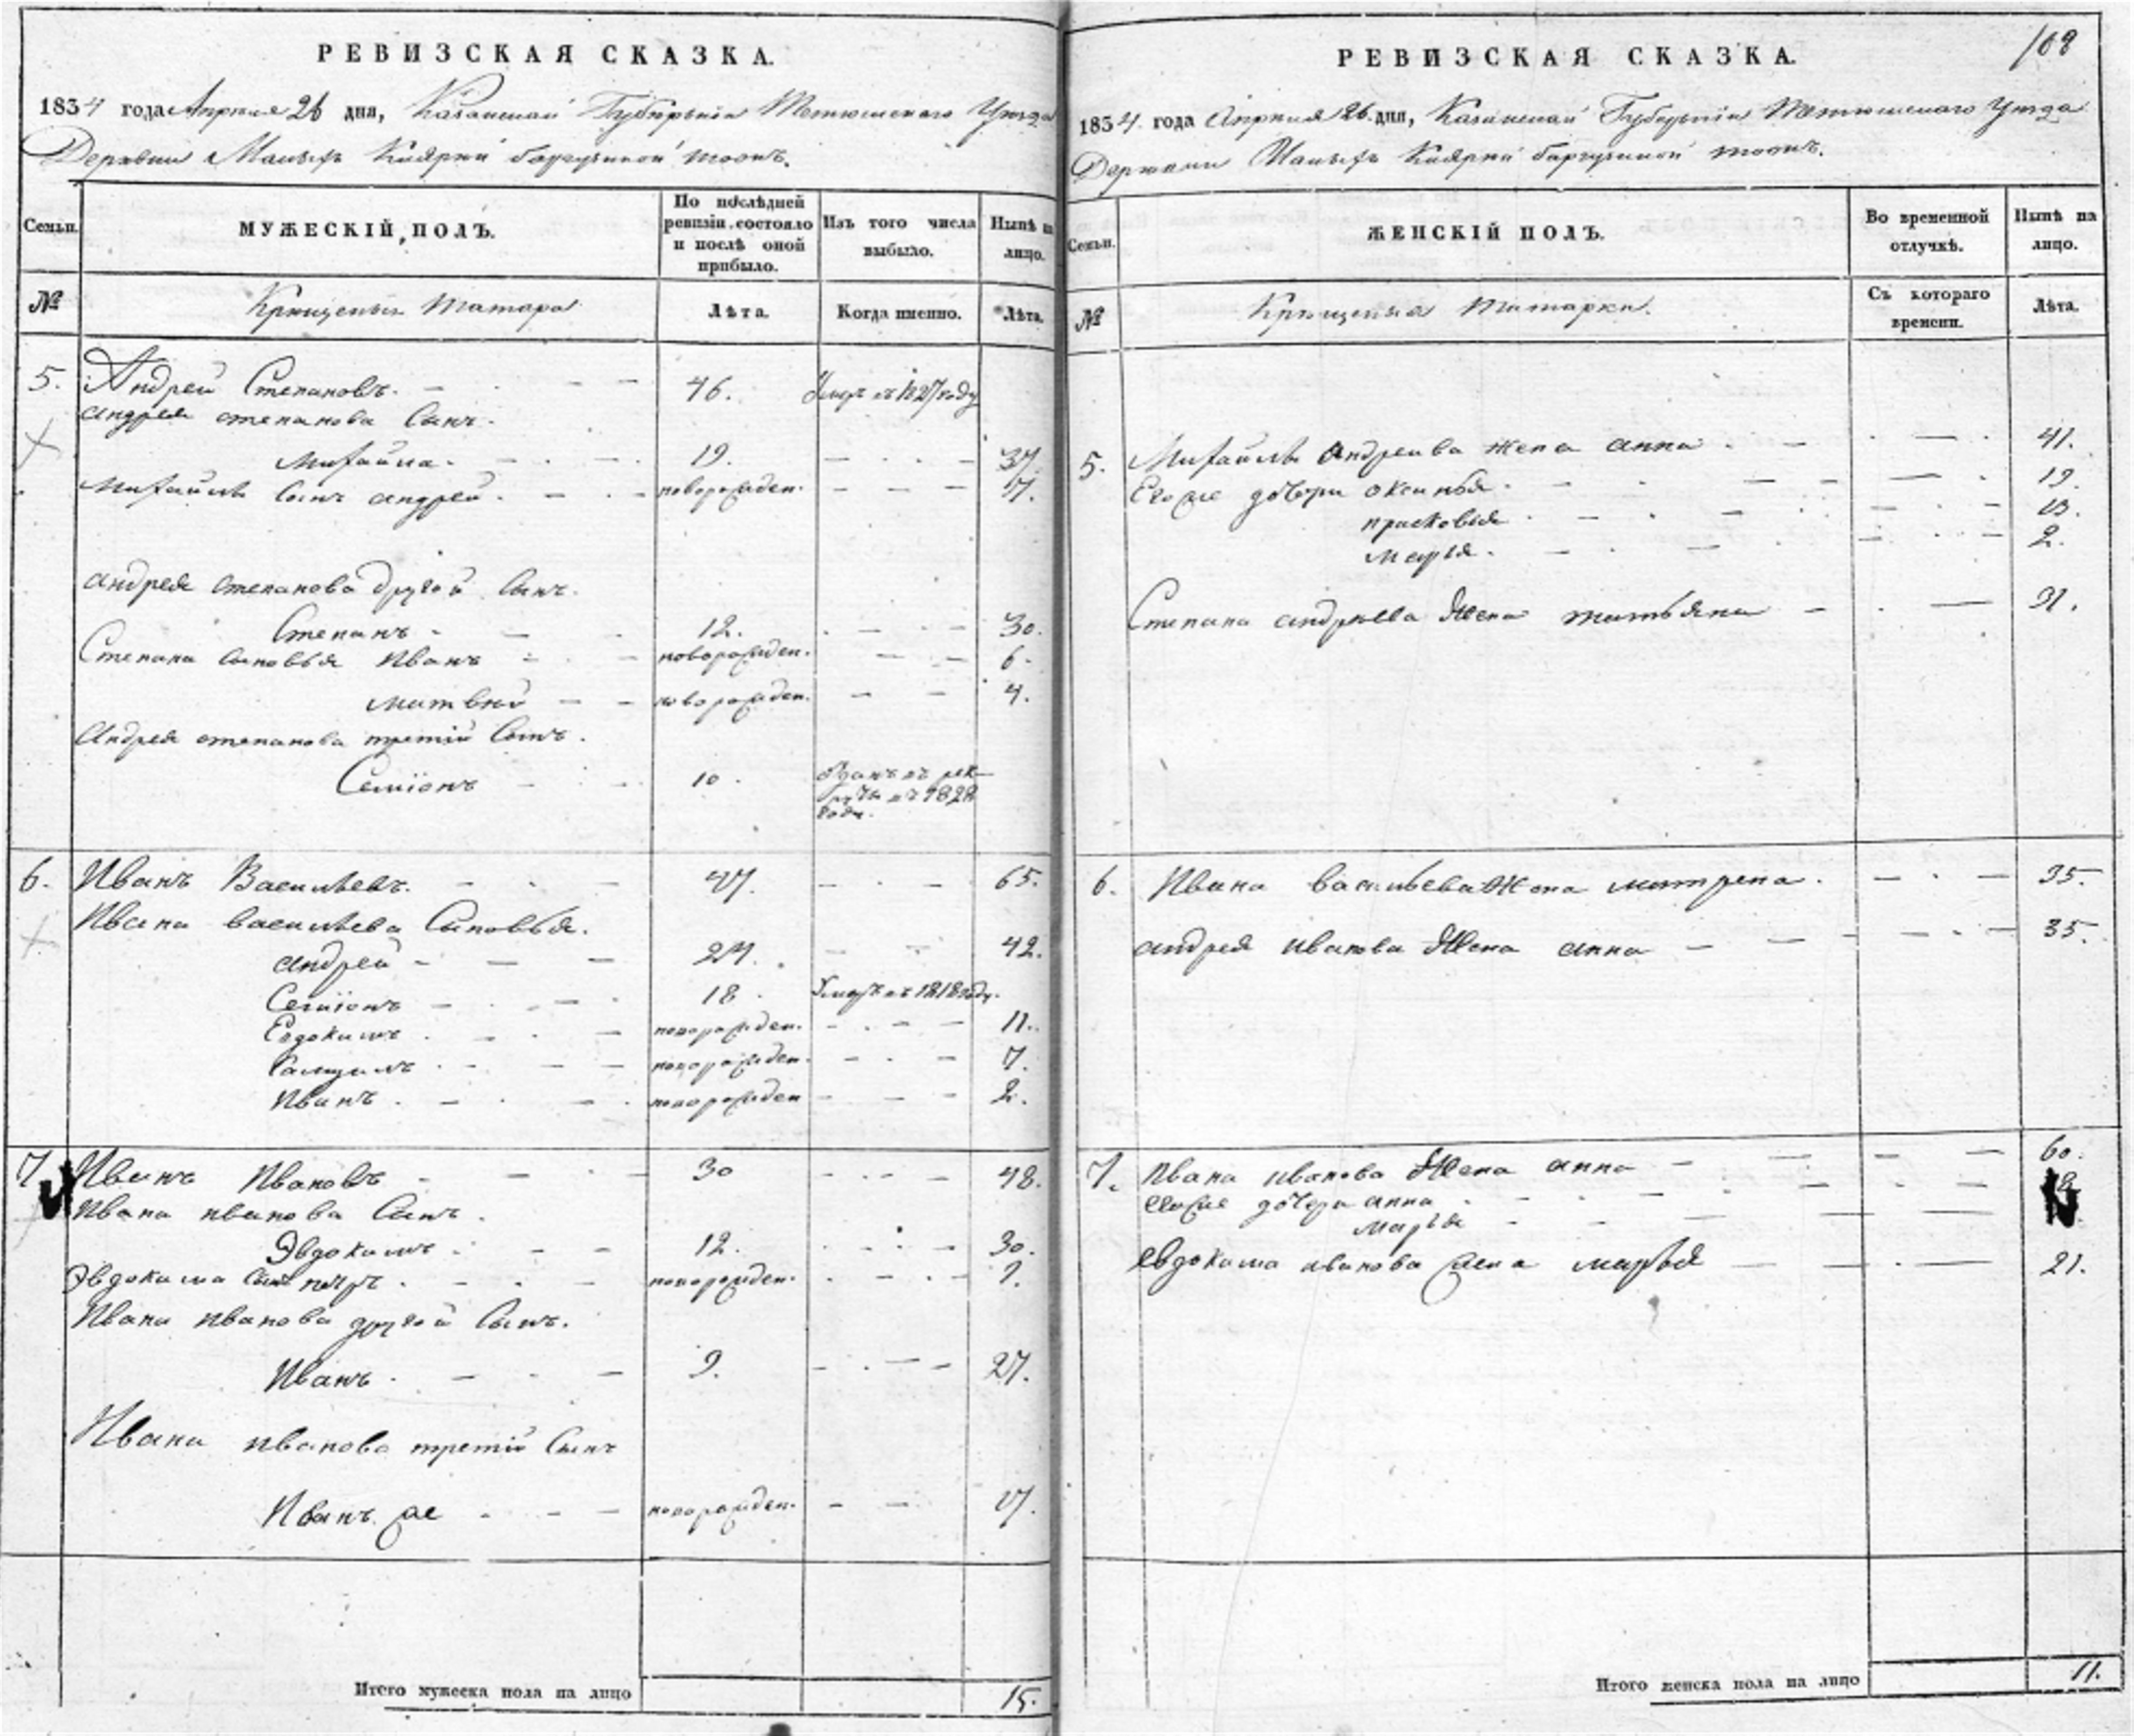 РЕВИЗСКАЯ СКАЗКА.
1834 года Апреля 26 дня, Казанской Губернии Тетюшского Уезда
Деревни Малыхъ тожъ.
Семьи.
МУЖЕСКІЙ ПОЛЪ.
По послѣдней ревизіи состояло и послѣ оной прибыло.
Изъ того числа выбыло.
Нынѣ на лицо.
№
Крещены Татара
Лѣта.
Когда именно.
Лѣта.
5. Андрей Степановъ. 46. Умеръ въ 1827 году
андрея степанова Сынъ.
Михайла. 19. 37.
Михайлы сынъ андрей. новорожден. 7.
андрея степанова другой Сынъ.
Степанъ 12. 30.
Степана сыновья Иванъ новорожден. 6.
матвей новорожден. 4.
Андрея степанова третій Сынъ.
Семіонъ 10. отданъ въ рек-
руты въ 1828
году.
6. Иванъ Васильевъ. 47. 65.
Ивана васильева Сыновья.
андрей 24. 42.
Семіонъ 18. Умеръ въ 1818 году.
Евдокимъ новорожден. 11.
новорожден. 7.
Иванъ новорожден 2.
7. Иванъ Ивановъ 30 48.
Ивана иванова Сынъ.
Эвдокимъ 12. 30.
Эвдокима Сынъ петръ. новорожден.
Ивана иванова другой Сынъ.
Иванъ 9. 27.
Ивана иванова третій Сынъ
Иванъ же новорожден. 17.
Итого мужеска пола на лицо 15.
108
РЕВИЗСКАЯ СКАЗКА.
1834 года Апреля 26 дня, Казанской Губерніи Тетюшскаго Уезда
Деревни Малыхъ тожъ.
Семьи.
ЖЕНСКІЙ ПОЛЪ.
Во временной отлучкѣ.
Нынѣ на лицо.
№
Крещеныя Татарки.
Съ котораго времени.
Лѣта.
5. Михайлы Андреива жена анна 41.
Его же дочери оксинья. 19.
прасковья 13.
марья. 2.
Степана андреева Жена татьяна 31.
6. Ивана васильева Жена матрена. 35.
андрея иванова Жена анна 35.
7. Ивана иванова Жена анна 60.
Его же дочери анна
марья
евдокима иванова жена марья 21.
Итого женска пола на лицо 11.